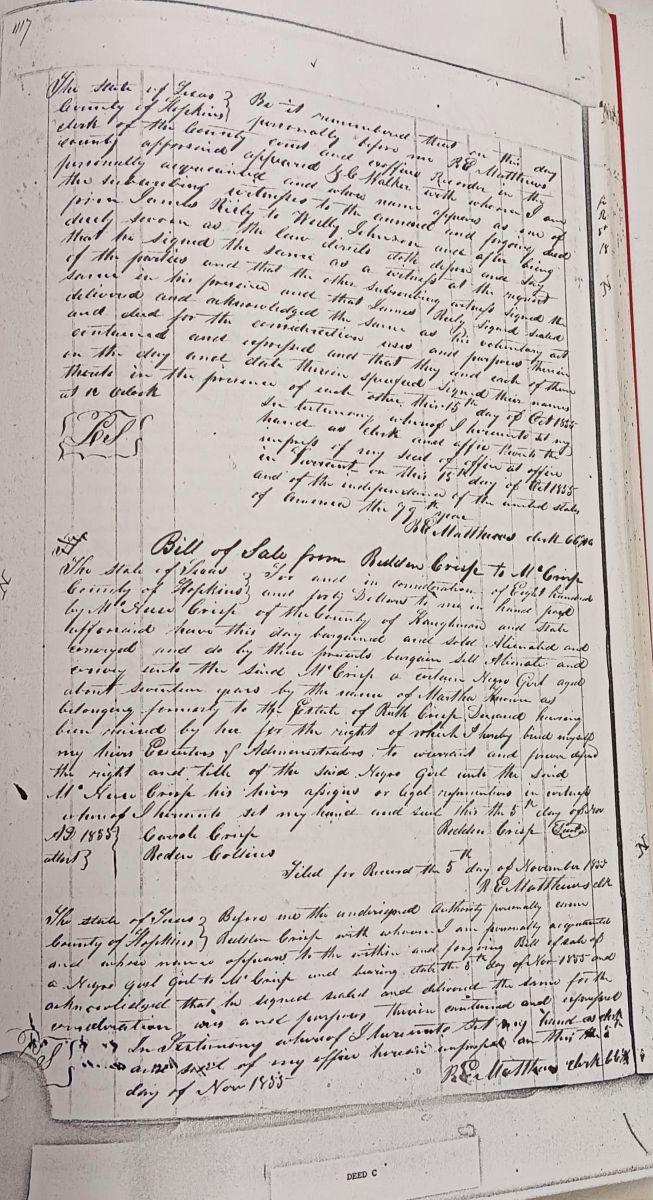 417
The state of Texas } Be it remembered that on this day
County of Hopkins } personally before me R E Matthews
clerk of the County court and exoffico Recorder in the
county afforsaid appeared Walker with whom I am
personally acquainted and whose name appears as one of
the subscribing witnesses to the annexed and forgoing deed
from James Riely to Johnson and after being
duly sworn as the law directs doth depose and say
that he signed the same as a witness at the request
of the parties and that the other subscribing witness signed the
same in his presence and that James Riely signed sealed
delivered and acknowledged the same as his voluntary act
and deed for the consideration uses and purposes therein
contained and expressed and that they and each of them
on the day and date therein specified signed their names
thereto in the presence of each other this 15th day of Oct 1855
at 12 Oclock
In testimony whereof I hereunto set my
hand as clerk and affix thereto the
impress of my seal of office at office
in Tarrant on this 15th day of Oct 1855
and of the independance of the united states
of America the 79th year
R E Matthews clerk
Bill of Sale from Redden Crisp to Mc Crisp
The state of Texas } For and in consideration of Eight hundred
County of Hopkins } and forty Dollars to me in hand paid
by Mc Crisp of the County of Kaughman and state
afforsaid have this day bargained and sold Alienated and
conveyed and do by these presents bargain sell Alinate and
convey unto the said Mc Crisp a certain Negro Girl aged
about seventeen years by the name of Martha as
belonging formerly to the Estate of Ruth Crisp Deceased having
been raised by her for the right of which I hereby bind myself
my hiers Executors & Administrators to warrant and forever defend
the right and title of the said Negro Girl unto the said
Mc Crisp his hiers assigns or legal representives in witness
whereof I hereunto set my hand and seal this the 5th day of Nov
AD 1855 } Carrole Crisp Redden Crisp
attest } Reden Collins
Filed for Record the 5th day of November 1855
R E Matthews clk
The state of Texas } Before me the undersigned Authority personally came
County of Hopkins } Redden Crisp with whom I am personally acquainted
and whose name appears to the within and forgoing Bill of sale of
a Negro Girl Girl to Mc Crisp and bearing date the 5th day of Nov 1855 and
acknowledged that he signed sealed and delivered the same for the
consideration uses and purposes therein contained and expressed
In Testimony whereof I hereunto set my hand as clerk
seal of my office hereon impressed on this the 5th
day of Nov 1855
R E Matthews clerk
DEED C